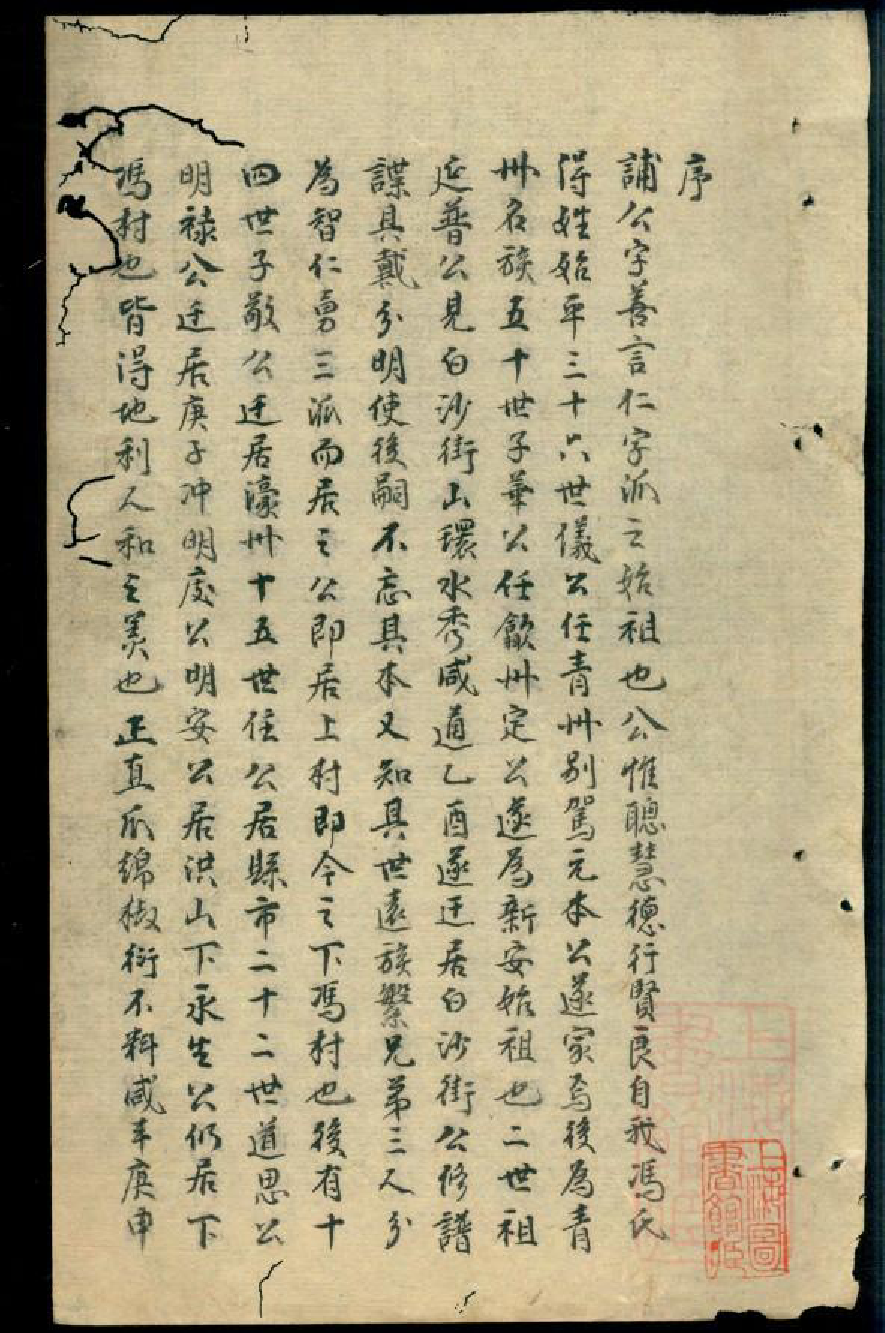 序
誧公字善言仁字派之始祖也公惟聰慧德行賢良自我馮氏
得姓始平三十六世儀公任青州别駕元本公遂家焉後為青
州名族五十世子華公任歙州定公遂為新安始祖也二世祖
延普公見白沙街山環水秀咸通乙酉遂迁居白沙街公修譜
諜具戴分明使後嗣不忘其本又知其世遠族繁兄弟三人分
為智仁勇三派而居之公即居上村即今之下馮村也後有十
四世子敬公迁居濠州十五世住公居縣市二十二世道思公
明祿公迁居庚子冲明慶公明安公居洪山下永生公仍居下
馮村也皆得地利人和之美也正直瓜綿椒衍不料咸丰庚申
上海圖書館藏